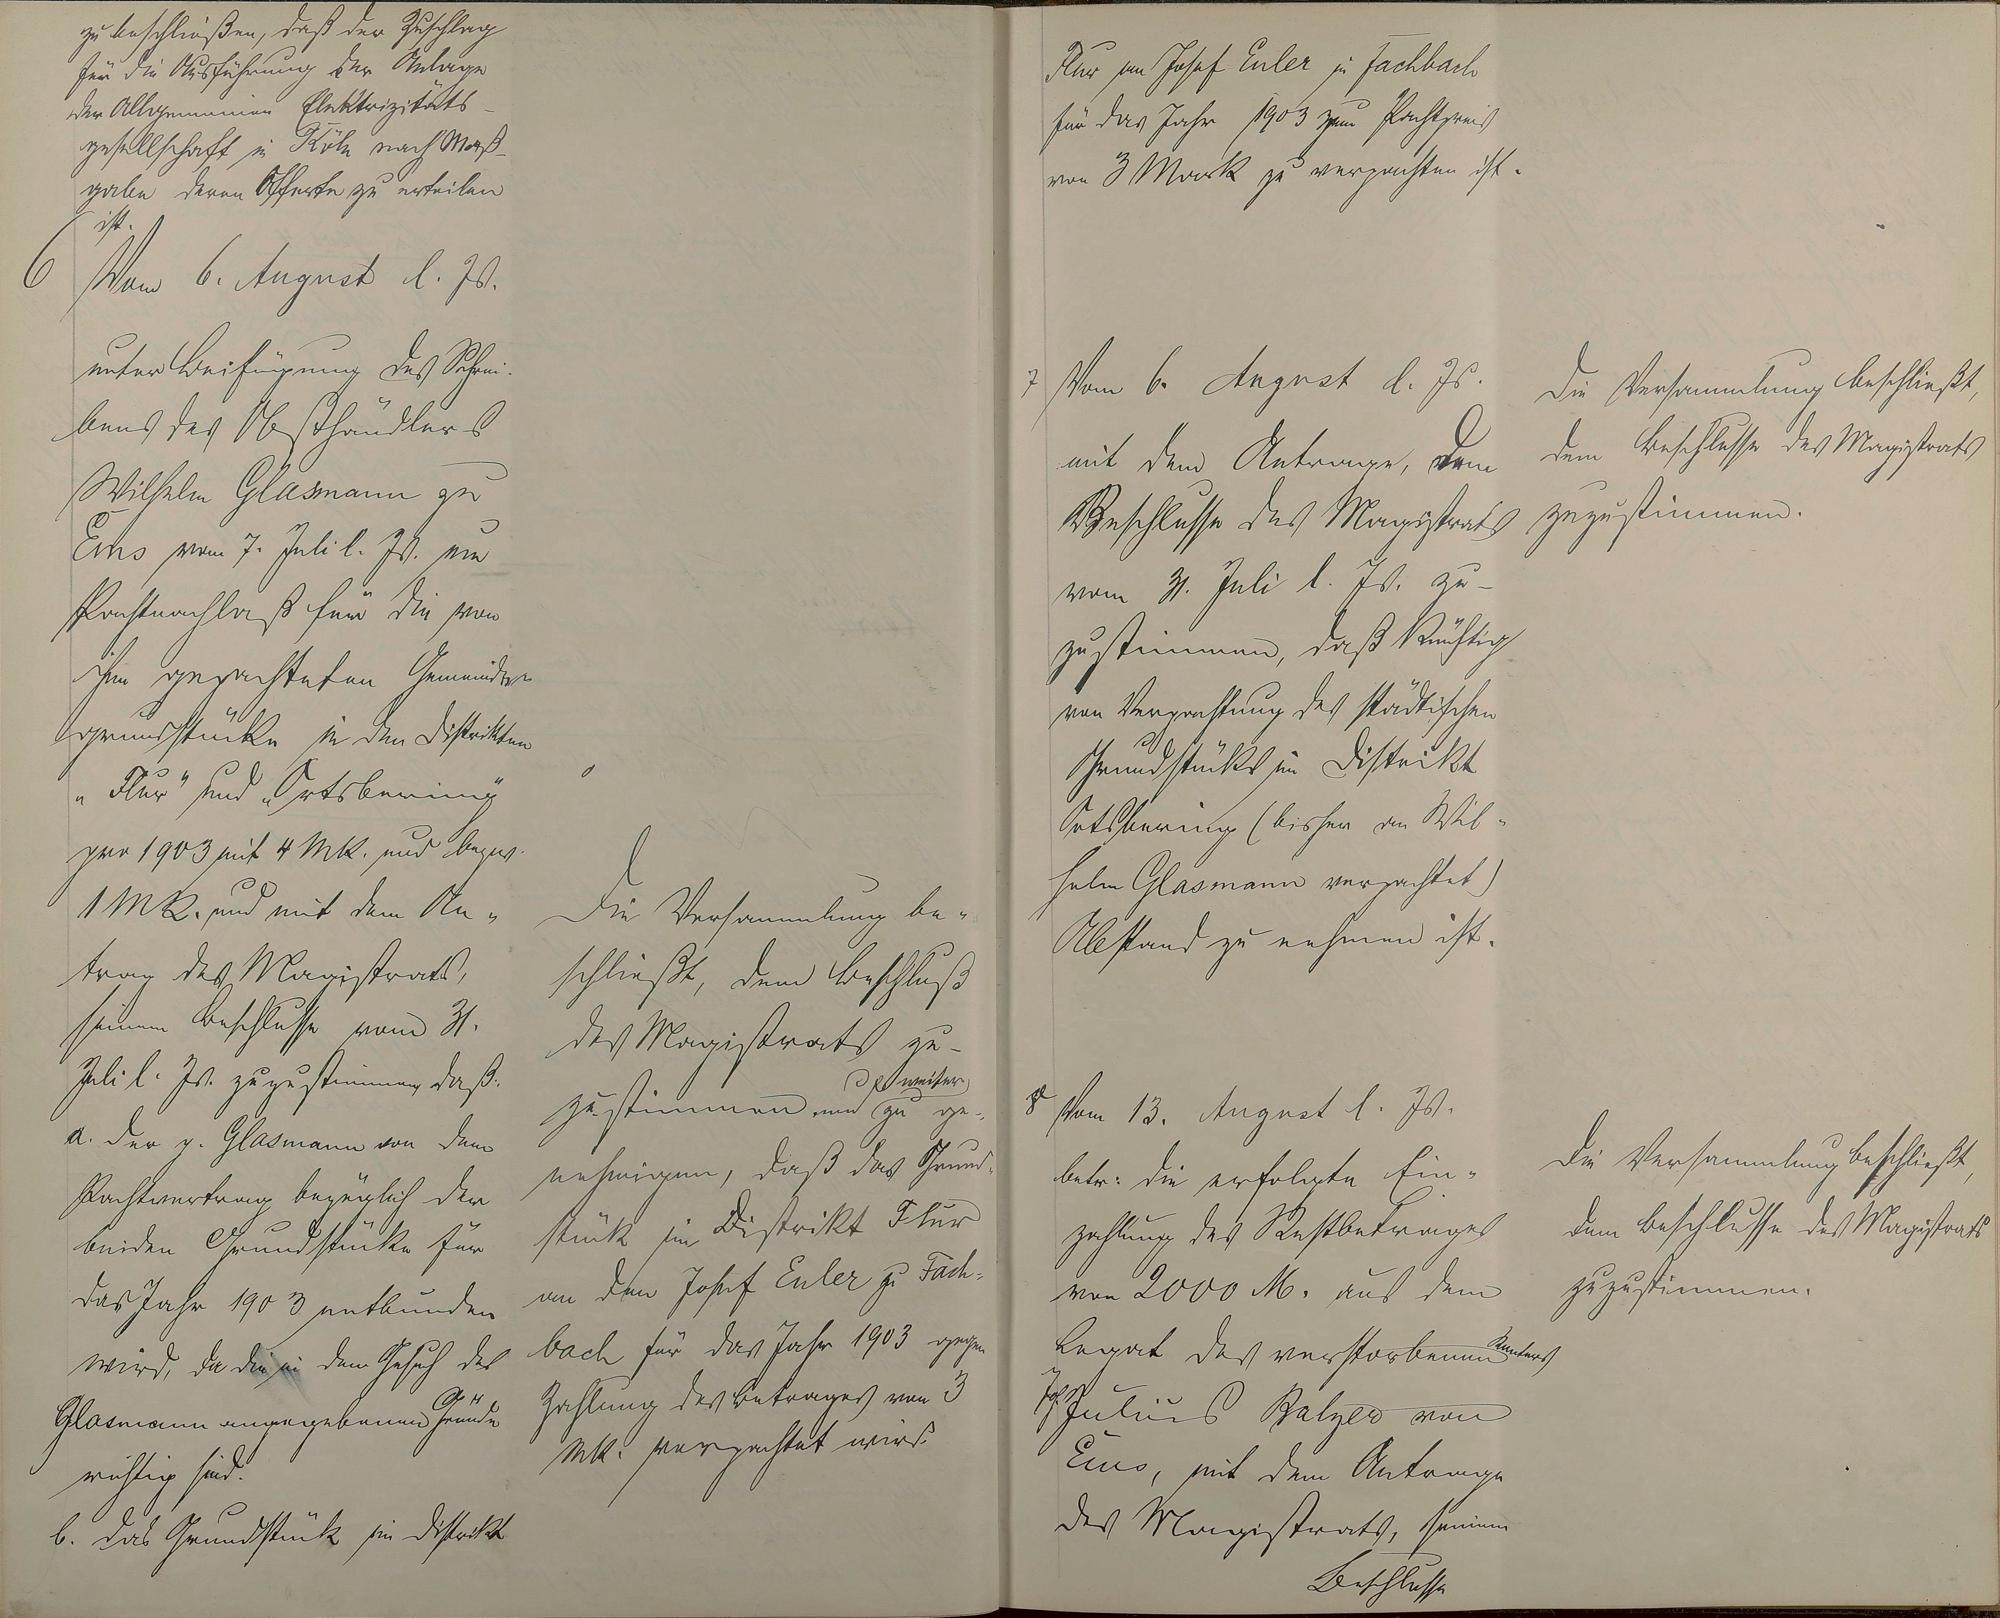 zu beschließen, daß der Zuschlag
für die Ausführung der Anlage
der Allgemeinen Elektrizitäts-
gesellschaft in Köln nach Maß-
gabe deren Offerte zu erteilen
ist.
6 Vom 6. August l. Js.
unter Beifügung des Schrei-
bens des Obsthändlers
Wilhelm Glasmann zu
Ems vom 7. Juli l. Js. um
Pachtnachlaß für die von
ihm gepachteten Gemeinde-
grundstücke in den Distrikten
„Flur" und „Ortsbering"
pro 1903 mit 4 Mk. und bezw.
1 Mk. und mit dem An-
trag des Magistrats,
seinem Beschlusse vom 31.
Juli l. Js. zuzustimmen, daß:
a. der p. Glasmann von dem
Pachtvertrag bezüglich der
beiden Grundstücke für
das Jahr 1903 entbunden
wird, da die in dem Gesuch des
Glasmann angegebenen Gründe
richtig sind.
b. das Grundstück im Distrikt
Die Versammlung be-
schließt, dem Beschluß
des Magistrats zu-
zustimmen und weiter zu ge-
nehmigen, daß das Grund-
stück im Distrikt Flur
an den Josef Euler zu Fach-
bach für das Jahr 1903 gegen
Zahlung des Betrages von 3
Mk. verpachtet wird.
Flur an Josef Euler in Fachbach
für das Jahr 1903 zum Pachtpreis
von 3 Mark zu verpachten ist.
7 Vom 6. August l. Js.
mit dem Antrage, dem
Beschlusse des Magistrats
vom 31. Juli l. Js. zu-
zustimmen, daß künftig
von Verpachtung des städtischen
Grundstücks im Distrikt
Ortsbering (bisher an Wil-
helm Glasmann verpachtet)
Abstand zu nehmen ist.
Die Versammlung beschließt,
dem Beschlusse des Magistrats
zuzustimmen.
8 Vom 13. August l. Js.
betr: die erfolgte Ein-
zahlung des Restbetrages
von 2000 M. aus dem
Legat des verstorbenen Rentners
Julius Balzer von
Ems, mit dem Antrage
des Magistrats, seinem
Beschlusse
Die Versammlung beschließt,
dem Beschlusse des Magistrats
zuzustimmen.